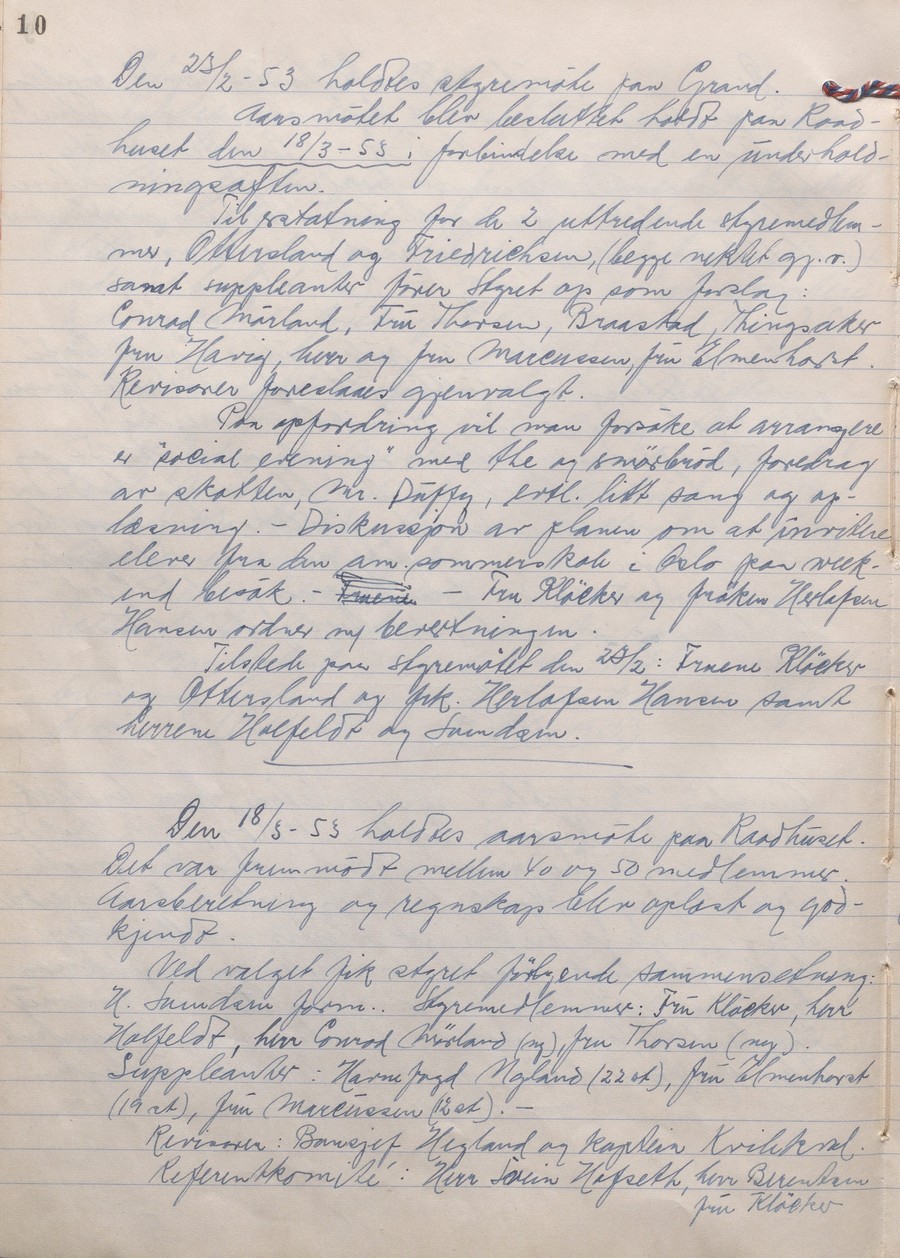 10
Den 23/2-53 holdtes styremöte paa Grand.
Aarsmötet blev besluttet holdt paa Raad-
huset den 18/3-53 i forbindelse med en underhold-
ningsaften.
Til erstatning for de 2 uttredende styremedlem-
mer, Ottersland og Friedrichsen, (begge nektet gj.v.)
samt suppleanter förer Styret op som forslag:
Conrad Mörland, Fru Thorsen, Braastad, Thingsaker
fru Havig, herr og fru Marcussen, fru Elmenhorst.
Revisorer foreslaaes gjenvalgt.
Paa opfordring vil man forsöke at arrangere
er "social evening" med the og smörbröd, foredrag
av skotten, Mr. Duffy, evtl. litt sang og op-
læsning. - Diskussjon av planen om at invitere
elever fra den am. sommerskole i Oslo paa week-
end besök. - Fruene - Fru Klöcker og fröken Herlofsen
Hansen ordner m/ bevertningen.
Tilstede paa styremötet den 23/2: Fruene Klöcker
og Ottersland og frk. Herlofsen Hansen samt
herrene Holfeldt og Svendsen.
Den 18/3-53 holdtes aarsmöte paa Raadhuset.
Det var fremmödt mellem 40 og 50 medlemmer.
Aarsberetning og regnskap blev oplæst og god-
kjendt.
Ved valget fik styret fölgende sammensetning:
H. Svendsen form.. Styremedlemmer: Fru Klöcker, herr
Holfeldt, herr Conrad Mörland (ny), fru Thorsen (ny).
Suppleanter: Havnefogd Nygland (22 st), fru Elmenhorst
(19 st), fru Marcussen (12 st). -
Revisorer: Banksjef Hegland og kaptein Kvilekval.
Referentkomité: Herr Svein Hofseth, herr Berentsen
fru Klöcker